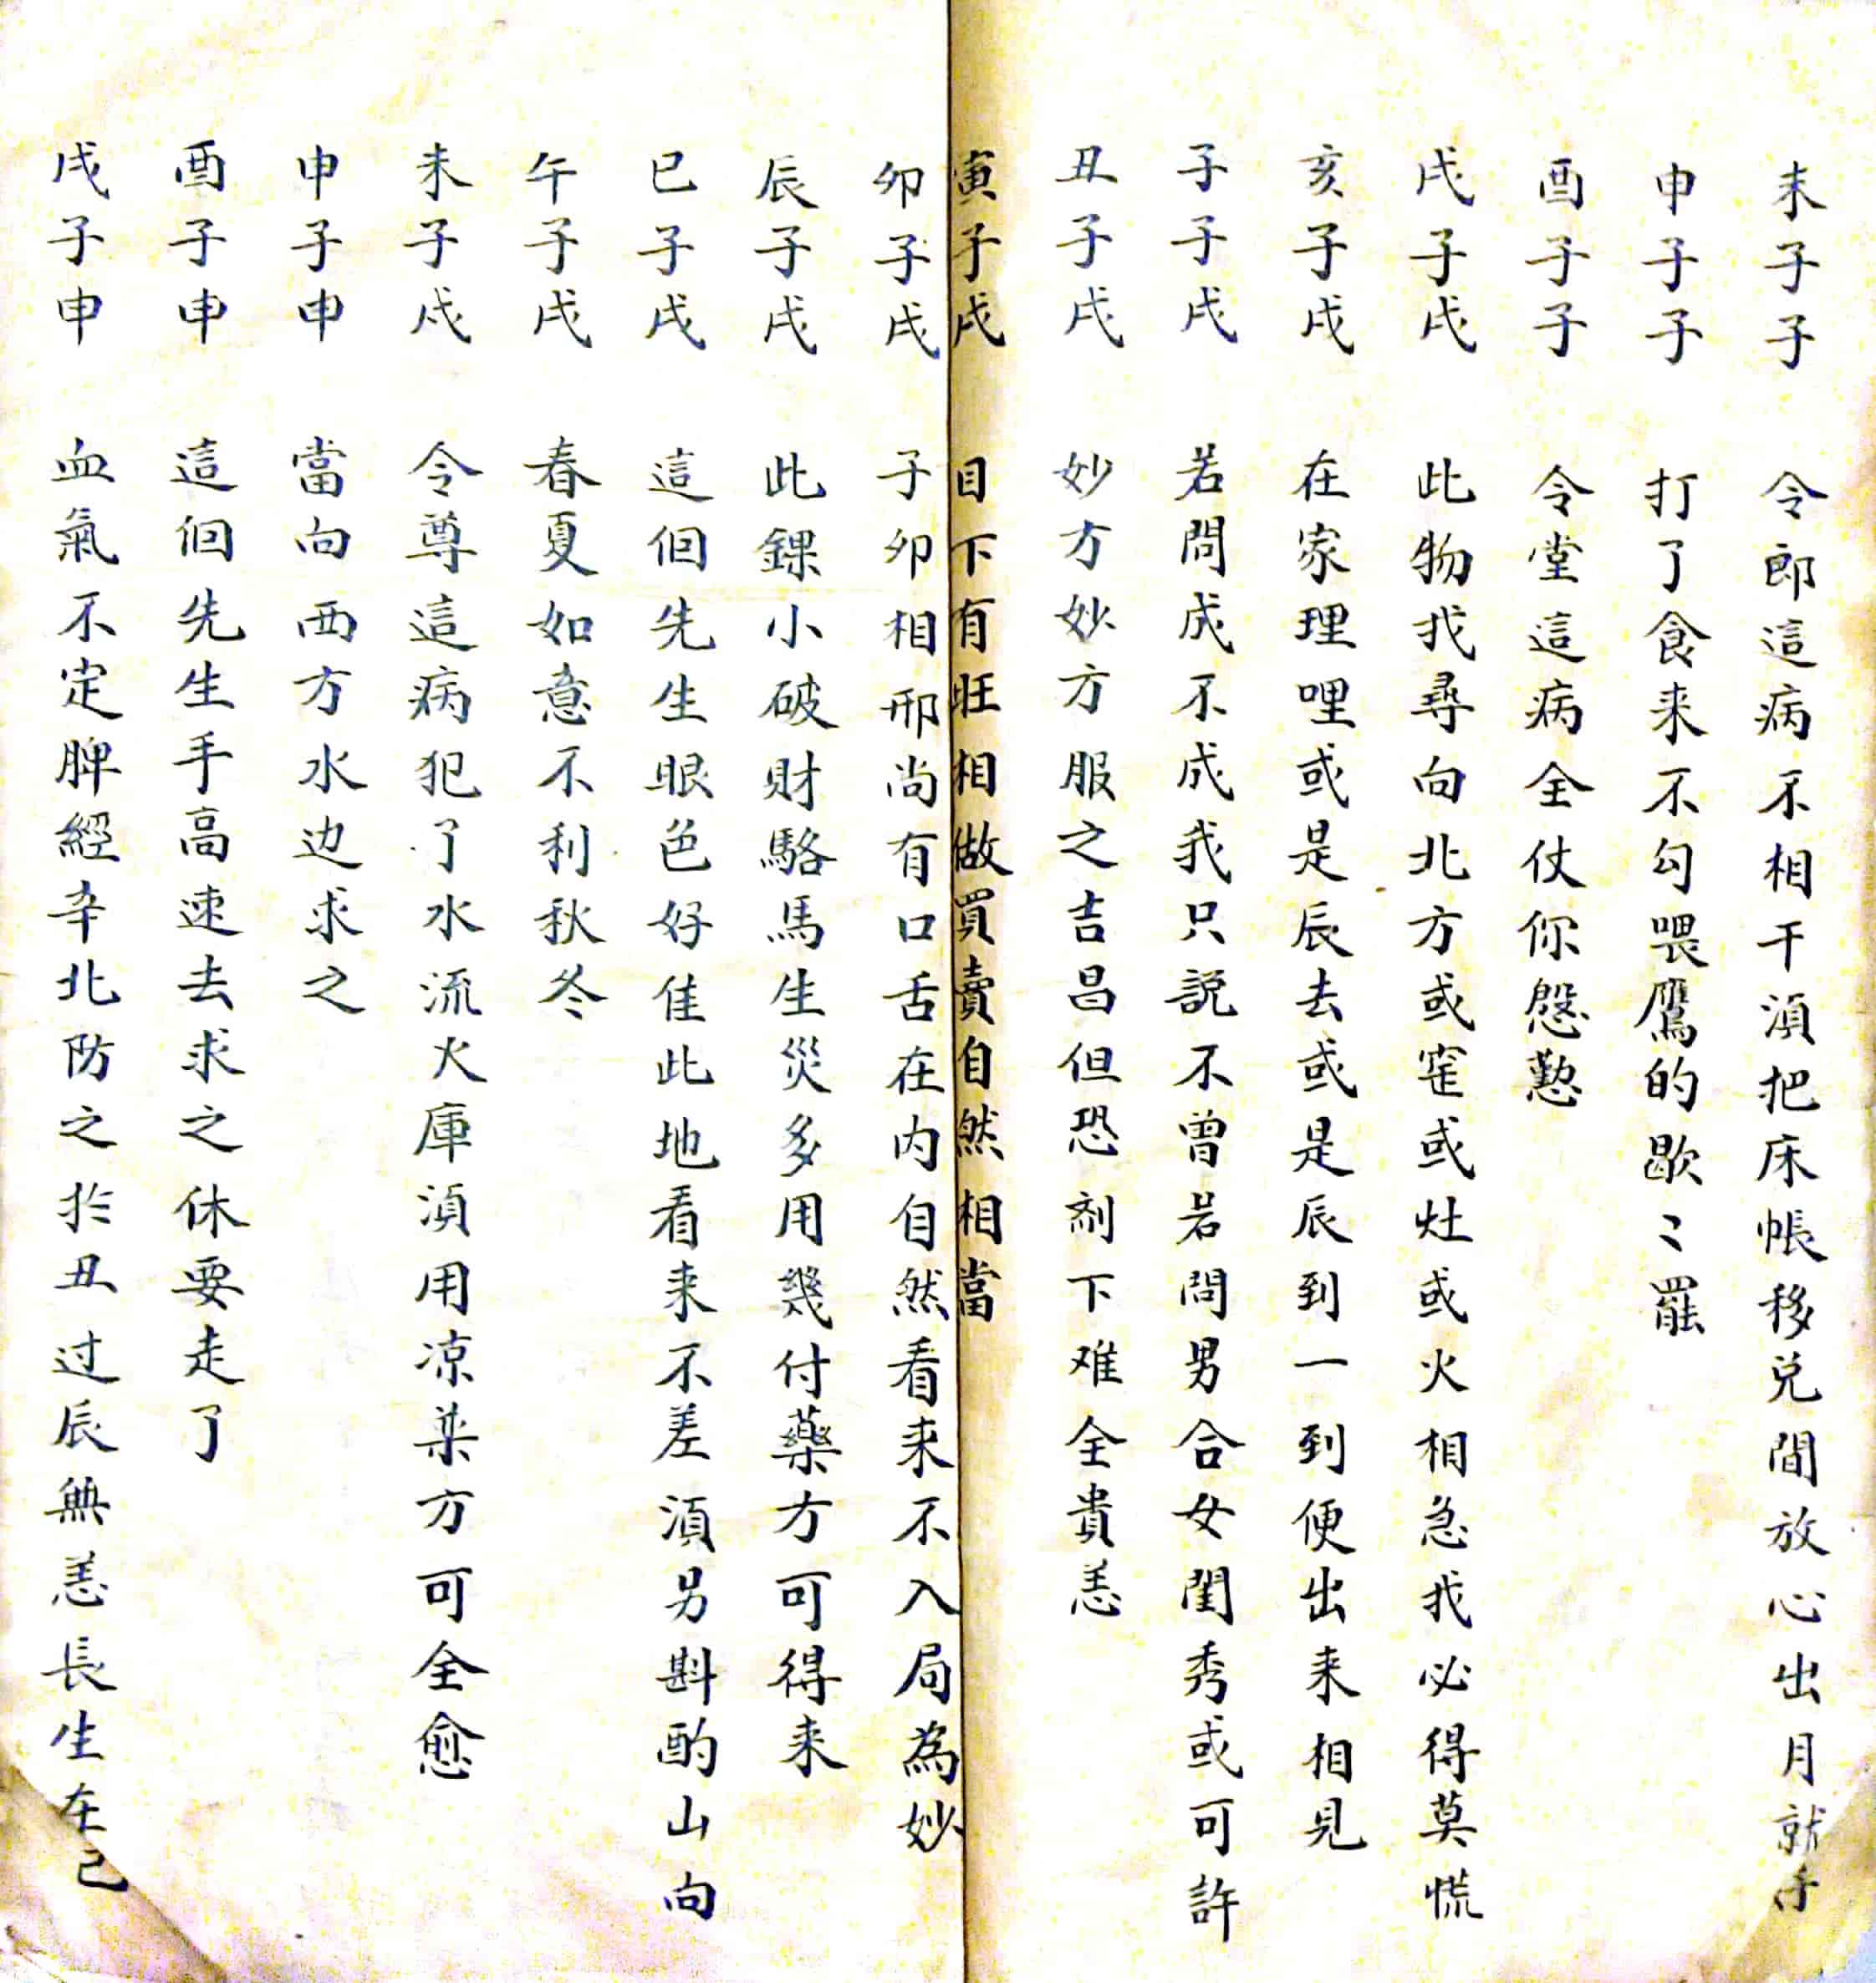 未子子 令郎這病不相干湏把床帳移兑間放心出月就
申子子 打了食来不勾喂鷹的歇〻罷
酉子子 令堂這病全仗你慇懃
戌子戌 此物找尋向北方或窑或灶或火相急找必得莫慌
亥子戌 在家理哩或是辰去或是辰到一到便出来相見
子子戌 若問成不成我只説不曾若問男合女閨秀或可許
丑子戌 妙方妙方服之吉昌但恐剂下难全貴恙
寅子戌 目下有旺相做買賣自然相當
卯子戌 子卯相邢尚有口舌在内自然看来不入局為妙
辰子戌 此錁小破財駱馬生災多用幾付藥方可得来
巳子戌 這個先生眼色好佳此地看来不差湏另斟酌山向
午子戌 春夏如意不利秋冬
未子戌 令尊這病犯了水流火庫湏用凉薬方可全愈
申子申 當向西方水边求之
酉子申 這個先生手高速去求之休要走了
戌子申 血氣不定脾經辛北防之扵丑过辰無恙長生在己